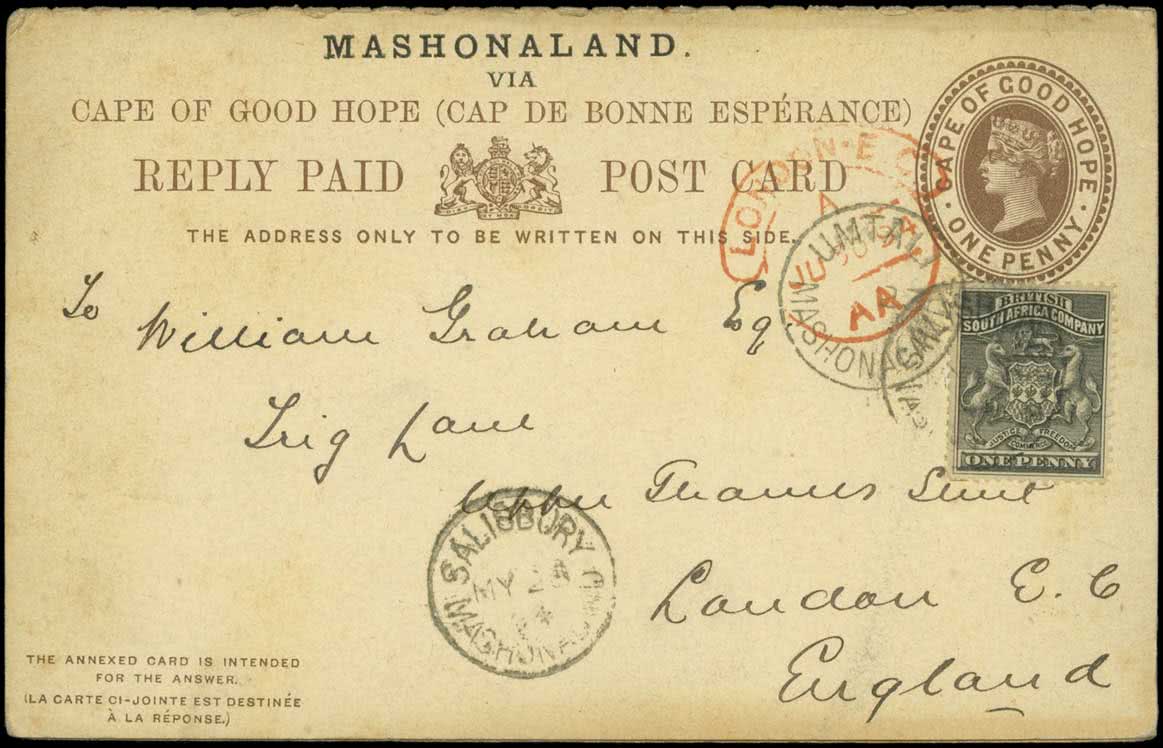 MASHONALAND.
VIA
CAPE OF GOOD HOPE (CAP DE BONNE ESPÉRANCE)
REPLY PAID POST CARD
THE ADDRESS ONLY TO BE WRITTEN ON THIS SIDE.
CAPE OF GOOD HOPE
ONE PENNY
LONDON-E.C
A
JU 30
AA
UMTALI
MASHONALAND
BRITISH
SOUTH AFRICA COMPANY
JUSTICE FREEDOM
COMMERCE
ONE PENNY
To William Graham Esq.
Trig Lane
Upper Thames Street
London E. C
England
SALISBURY
MY 23
MASHONALAND
THE ANNEXED CARD IS INTENDED
FOR THE ANSWER.
(LA CARTE CI-JOINTE EST DESTINÉE
À LA RÉPONSE.)